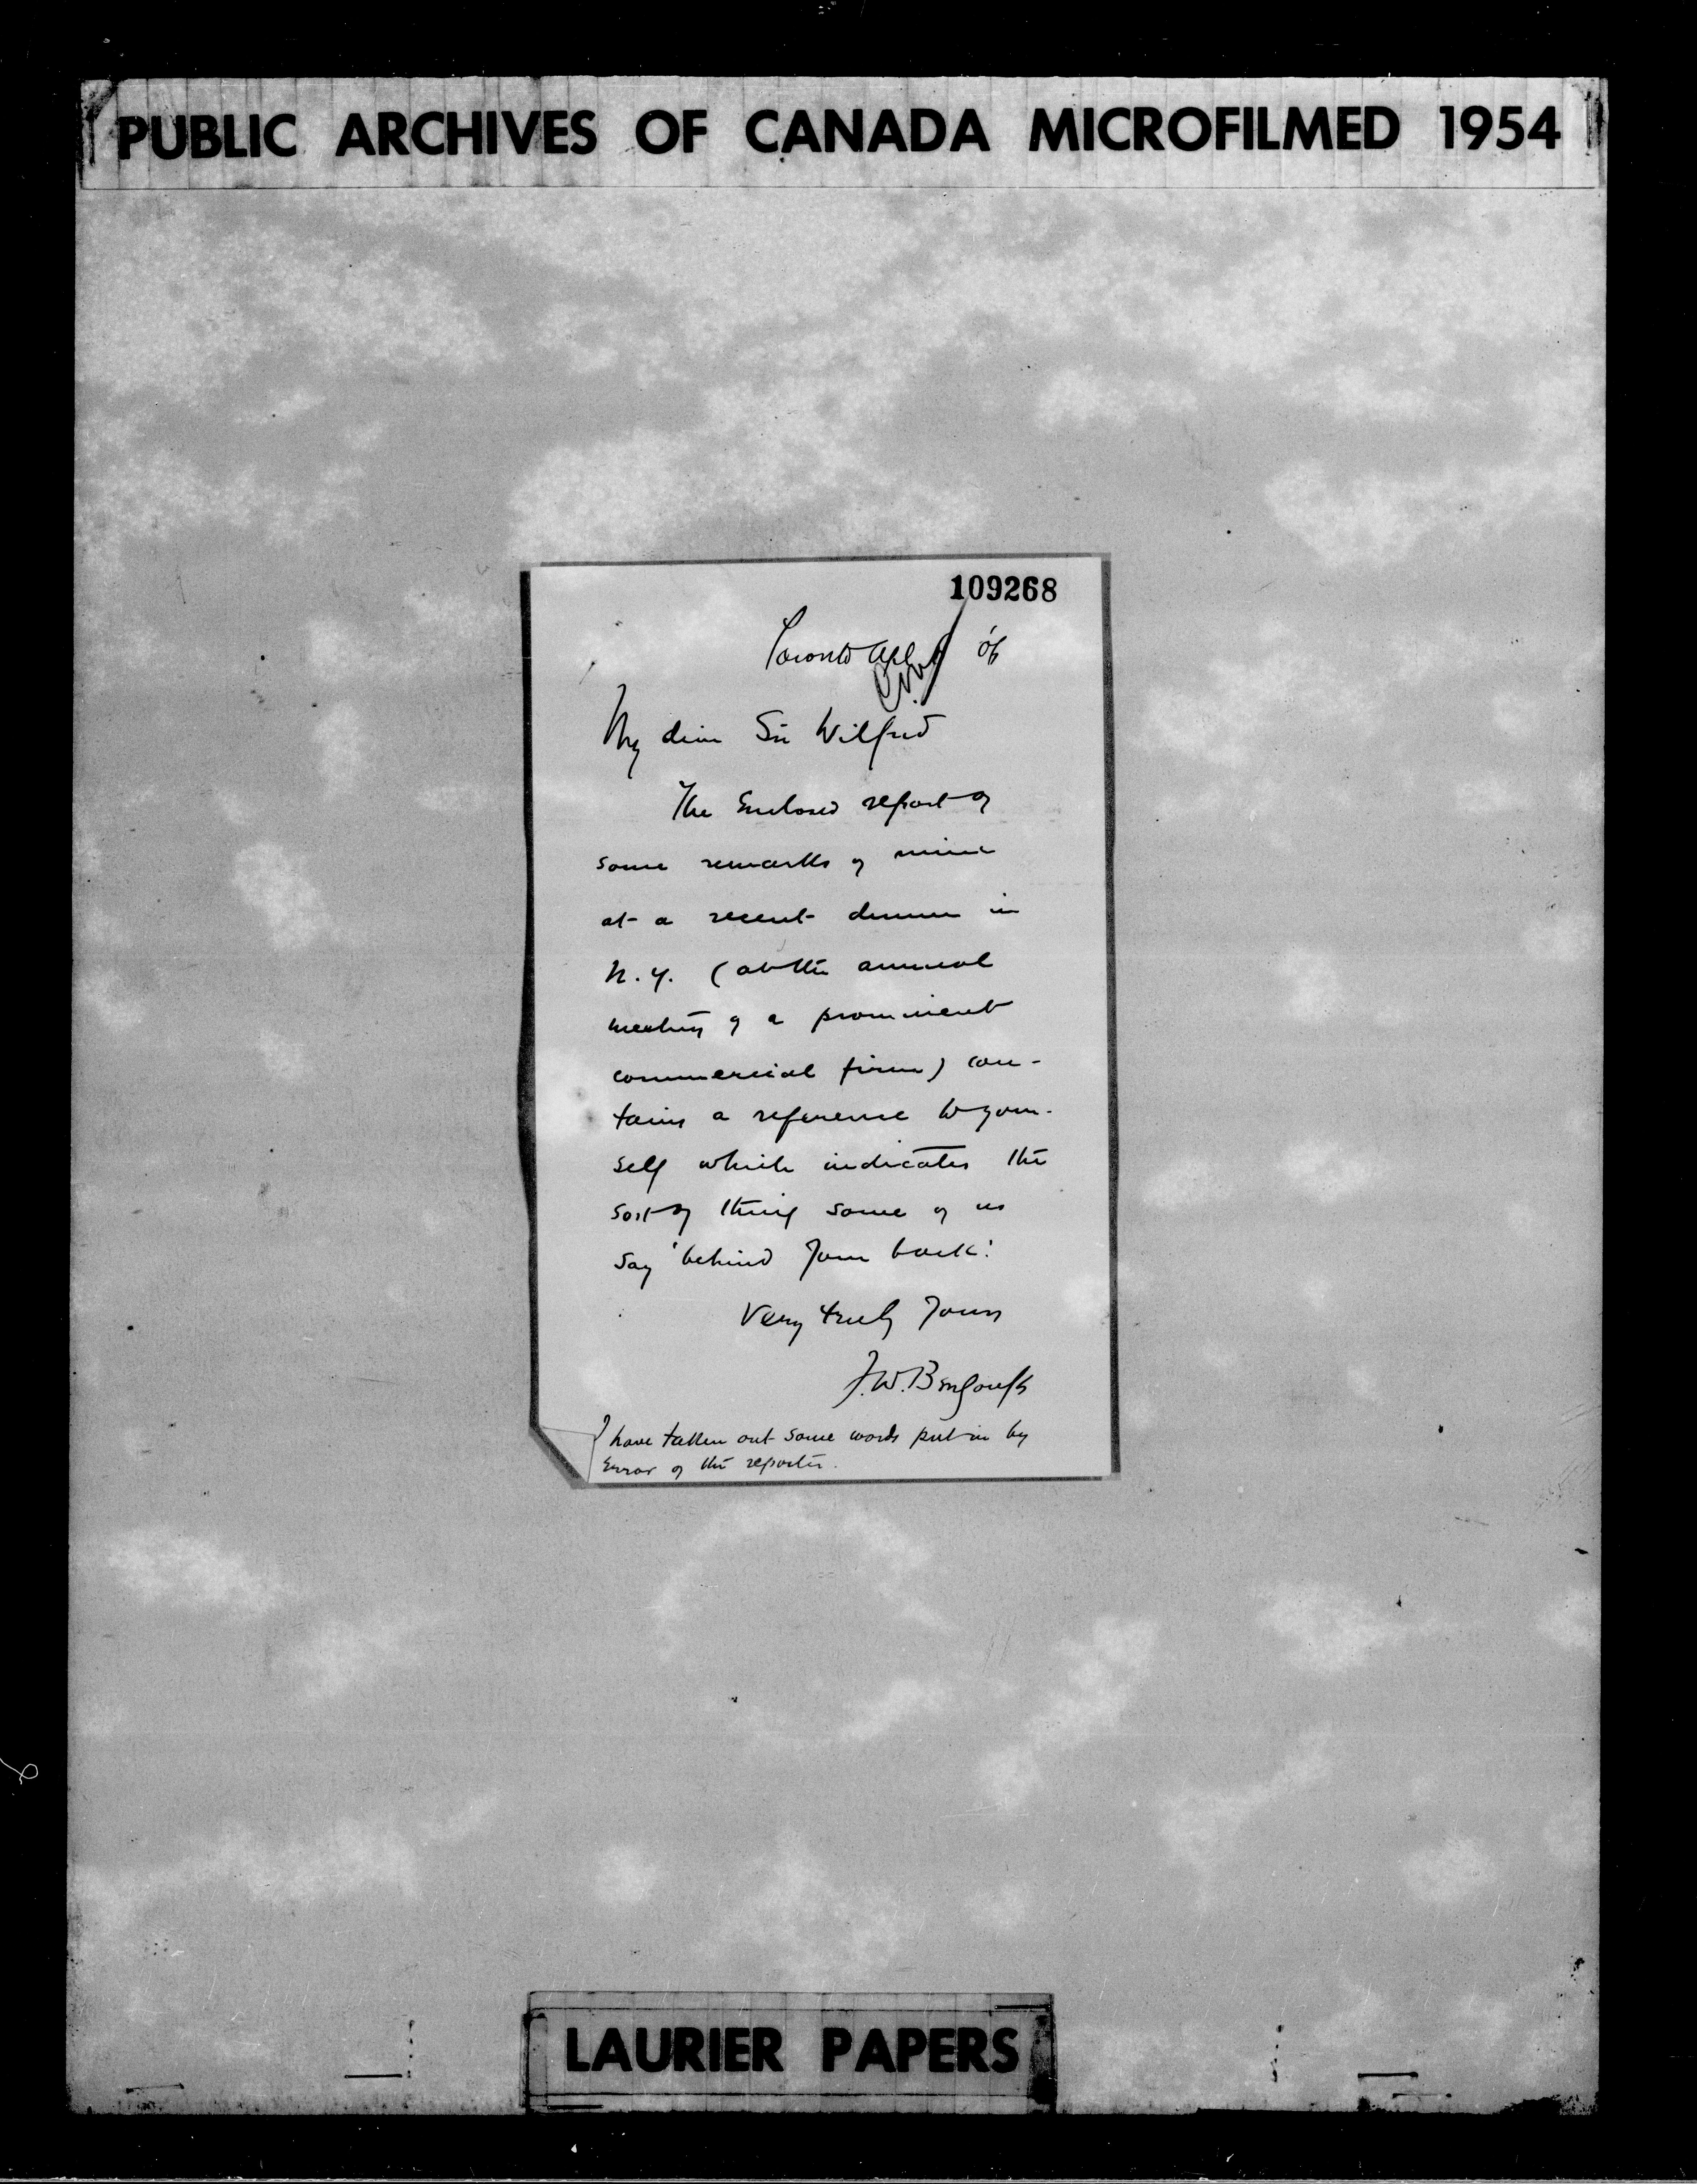 PUBLIC ARCHIVES OF CANADA MICROFILMED 1954
109268
Toronto '06
My dear Sir Wilfrid
The Enclosed report of
some remarks of mine
at a recent dinner in
N.Y. (at the annual
meeting of a prominent
commercial firm) con-
tains a reference to your-
self which indicates the
sort of thing some of us
say 'behind your back'.
Very truly Yours
J.W. Bengough
I have taken out some words put in by
Error of the reporter.
LAURIER PAPERS